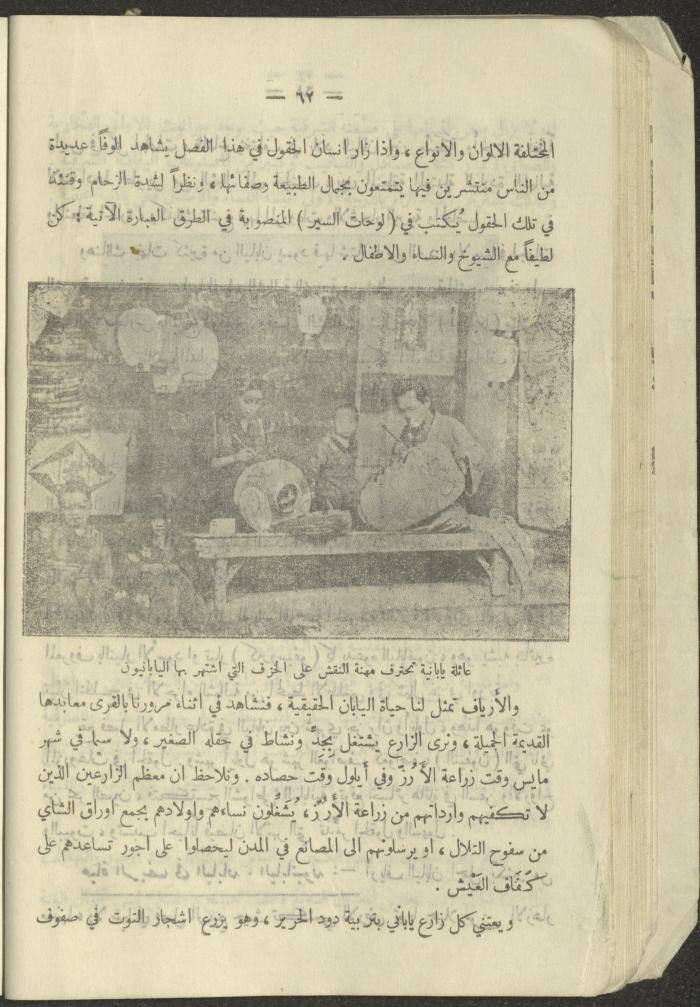 — ٦٢ —
المختلفة الالوان والانواع ، واذا زار انسان الحقول في هذا الفصل يشاهد الوفاً عديدة
من الناس منتشرين فيها يتمتعون بجمال الطبيعة وصفائها ، ونظراً لشدة الزحام وقتئذ
في تلك الحقول يُكتب في ( لوحات السير ) المنصوبة في الطرق العبارة الآتية : كن
لطيفاً مع الشيوخ والنساء والاطفال .
عائلة يابانية تحترف مهنة النقش على الخزف التي اشتهر بها اليابانيون
والأرياف تمثل لنا حياة اليابان الحقيقية ، فنشاهد في أثناء مرورنا بالقرى معابدها
القديمة الجميلة ، ونرى الزارع يشتغل بجِدٍّ ونشاط في حقله الصغير ، ولا سيما في شهر
مايس وقت زراعة الأَرُزّ وفي أيلول وقت حصاده . ونلاحظ ان معظم الزارعين الذين
لا تكفيهم وارداتهم من زراعة الأَرُزّ ، يُشغّلون نساءهم واولادهم بجمع اوراق الشاي
من سفوح التلال ، او يرسلونهم الى المصانع في المدن ليحصلوا على اجور تساعدهم على
كَفَاف العَيْش .
و يعتني كل زارع ياباني بتربية دود الحرير ، وهو يزرع اشجار التوت في صفوف